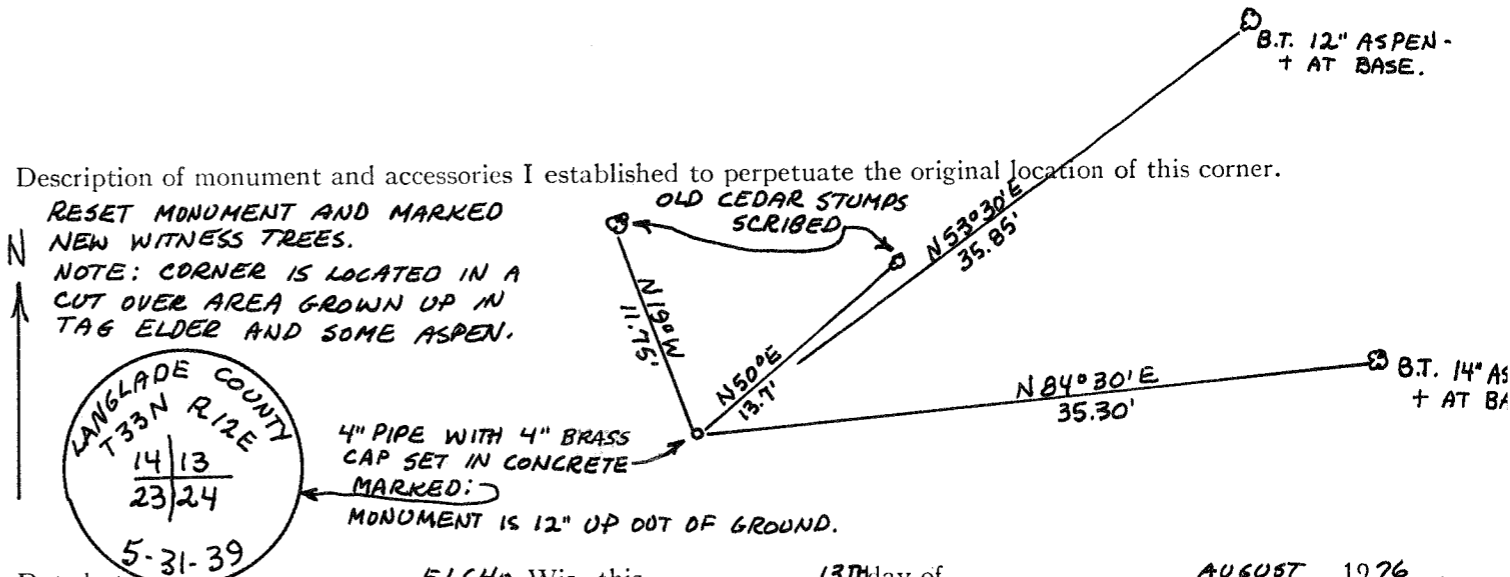 B.T. 12" ASPEN -
+ AT BASE.
Description of monument and accessories I established to perpetuate the original location of this corner.
RESET MONUMENT AND MARKED
NEW WITNESS TREES.
NOTE: CORNER IS LOCATED IN A
CUT OVER AREA GROWN UP IN
TAG ELDER AND SOME ASPEN.
N
OLD CEDAR STUMPS
SCRIBED
N53°30'E
35.85'
N19°W
11.75'
N50°E
13.7'
N84°30'E
35.30'
B.T. 14" AS
+ AT BA
LANGLADE COUNTY
T33N R12E
14|13
23|24
5-31-39
4" PIPE WITH 4" BRASS
CAP SET IN CONCRETE
MARKED:
MONUMENT IS 12" UP OUT OF GROUND.
Wis., this 13TH day of AUGUST 1976